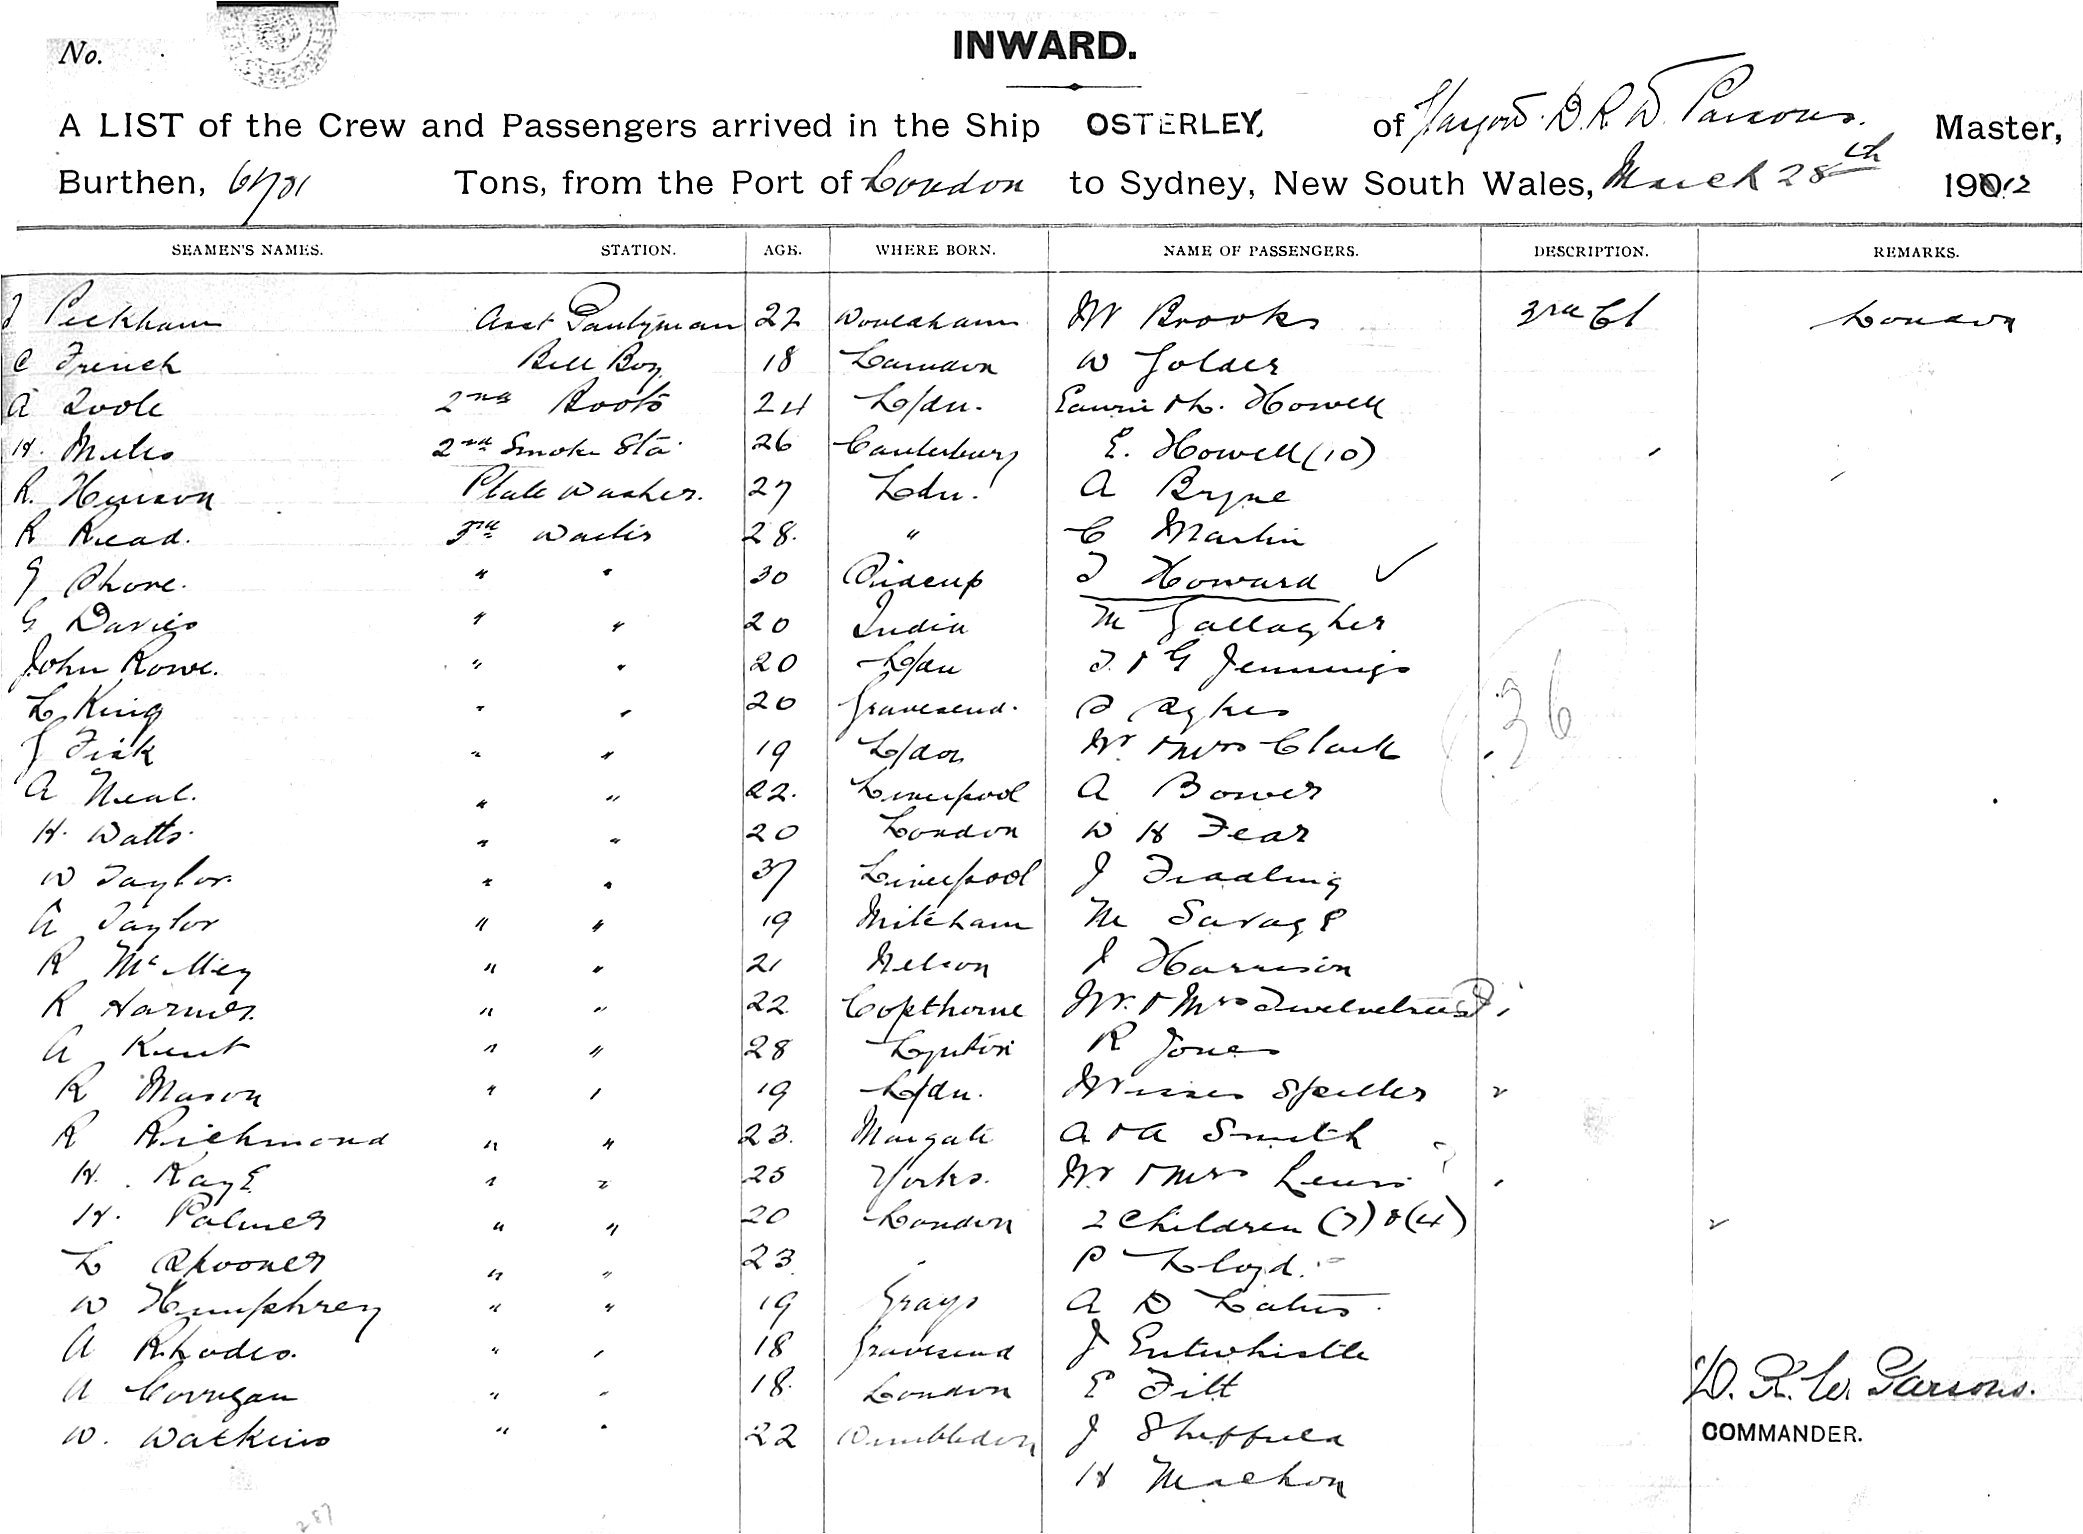 No.
INWARD.
A LIST of the Crew and Passengers arrived in the Ship OSTERLEY, of D. R. W. Parsons. Master,
Burthen, 6/701 Tons, from the Port of London to Sydney, New South Wales, March 28th 1912
SEAMEN'S NAMES. STATION. AGE. WHERE BORN. NAME OF PASSENGERS. DESCRIPTION. REMARKS.
Peckham Asst Pantryman 22 Mr Brooks 3rd Cl London
C French Bell Boy 18 London W Golder
A Toole 2nd Boots 24 L/dn. Howell
H. Miles 2nd Smoke Std. 26 Canterbury E. Howell (10)
R. Hewson Plate Washer. 27 Ldn. A Bryne
R Read. 3rd Waiter 28. " C Martin
G Shore. " " 30 Sidcup T Howard ✓
G Davies " " 20 India M Gallagher
John Rowe. " " 20 L/dn T. & G Jennings
L King " " 20 Gravesend. S Sykes
J Fisk " " 19 L/don Mr & Mrs Clark
A Neal. " " 22. Liverpool A Bower
H. Watts. " " 20 London W H Fear
W Taylor. " " 37 Liverpool J
A Taylor " " 19 Mitcham M Savage
R " " 21 Nelson J Harrison
R Harmer. " " 22 Copthorne Mr. & Mrs Twelvetrees
A Kent " " 28 R Jones
R Mason " " 19 L/dn. Misses Spiller
R Richmond " " 23. Margate A & A Smith
H. Kaye " " 25 Yorks. Mr & Mrs Lewis
H. Palmer " " 20 London 2 Children (7) & (4)
L Spooner " " 23 " P Lloyd.
W Humphrey " " 19 Grays A D
A Rhodes. " " 18 Gravesend J Entwhistle
A Corrigan " " 18. London E Filt
W. Watkins " " 22 Wimbledon J Sheffield
H Machon
36
D. R. W. Parsons.
COMMANDER.
287